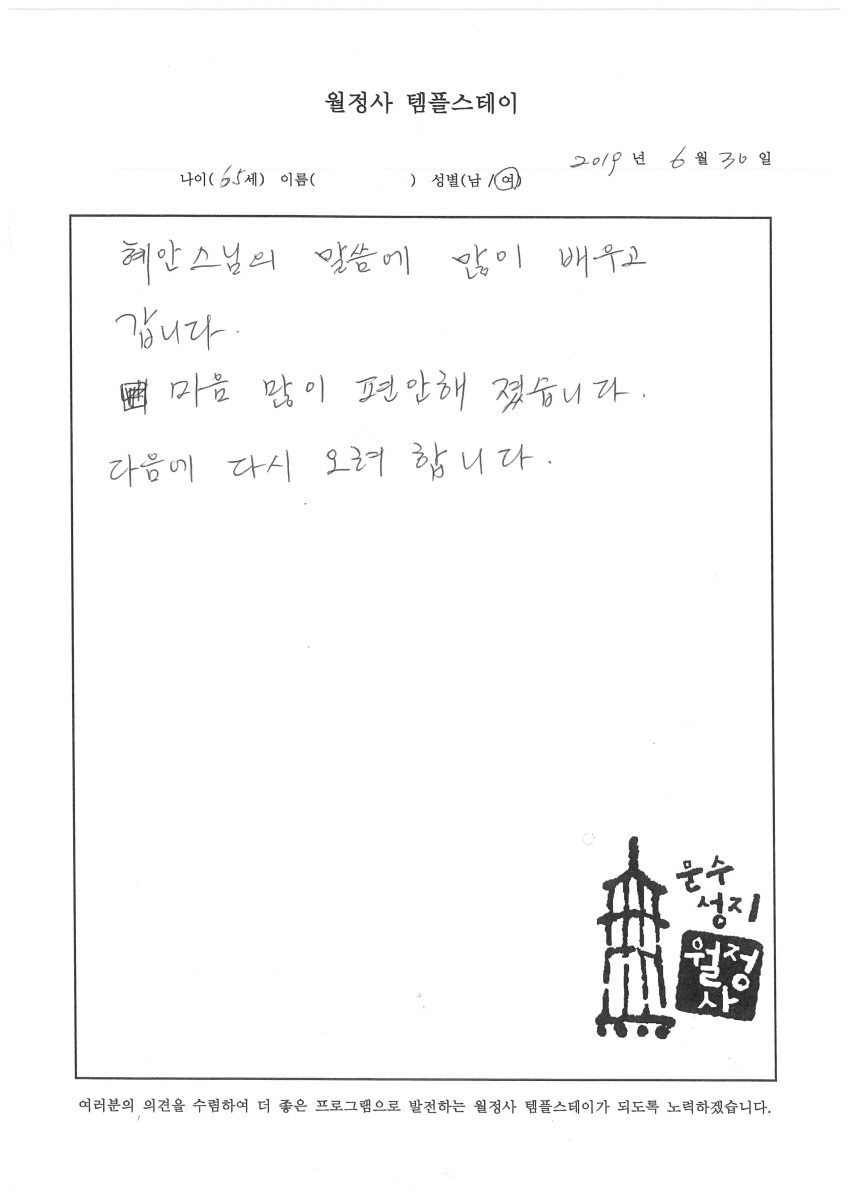 월정사 템플스테이
2019 년 6 월 30 일
나이( 65세) 이름( ) 성별(남 /여)
혜안스님의 말씀에 많이 배우고
갑니다.
마음 많이 편안해 졌습니다.
다음에 다시 오려 합니다.
문수
성지
월정
사
여러분의 의견을 수렴하여 더 좋은 프로그램으로 발전하는 월정사 템플스테이가 되도록 노력하겠습니다.